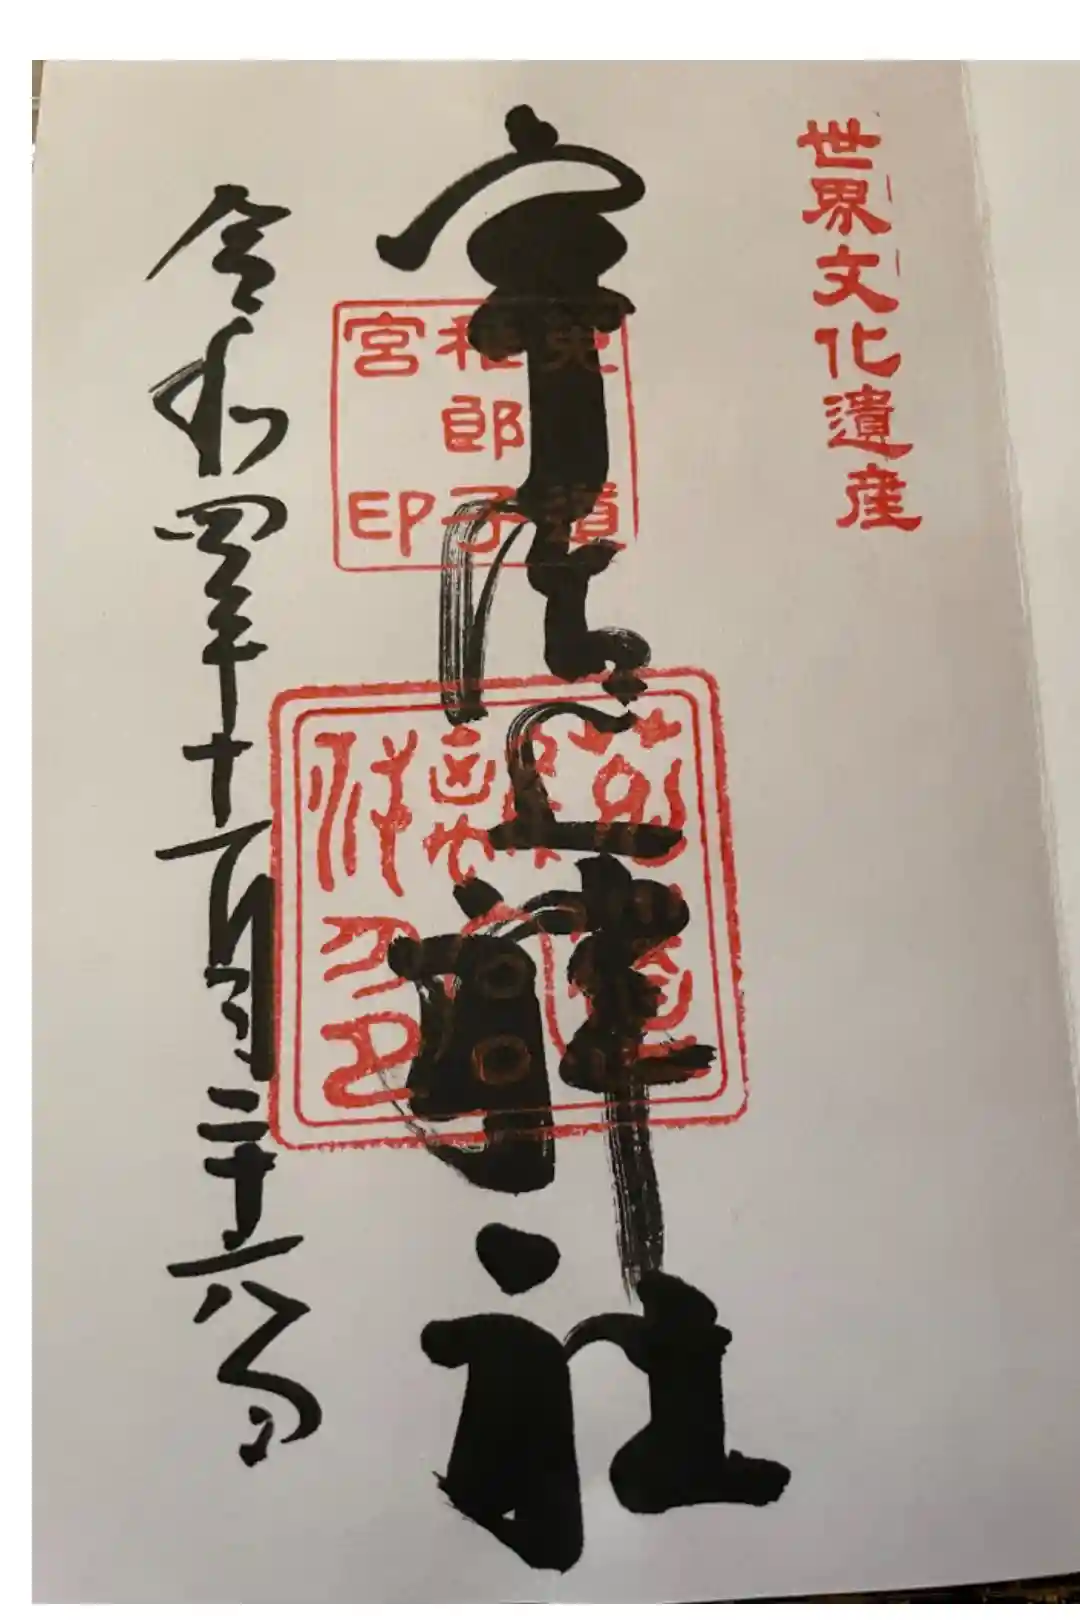 世界文化遺産
宇治上神社
莵道
稚郎子
宮印
令和四年十一月二十六日